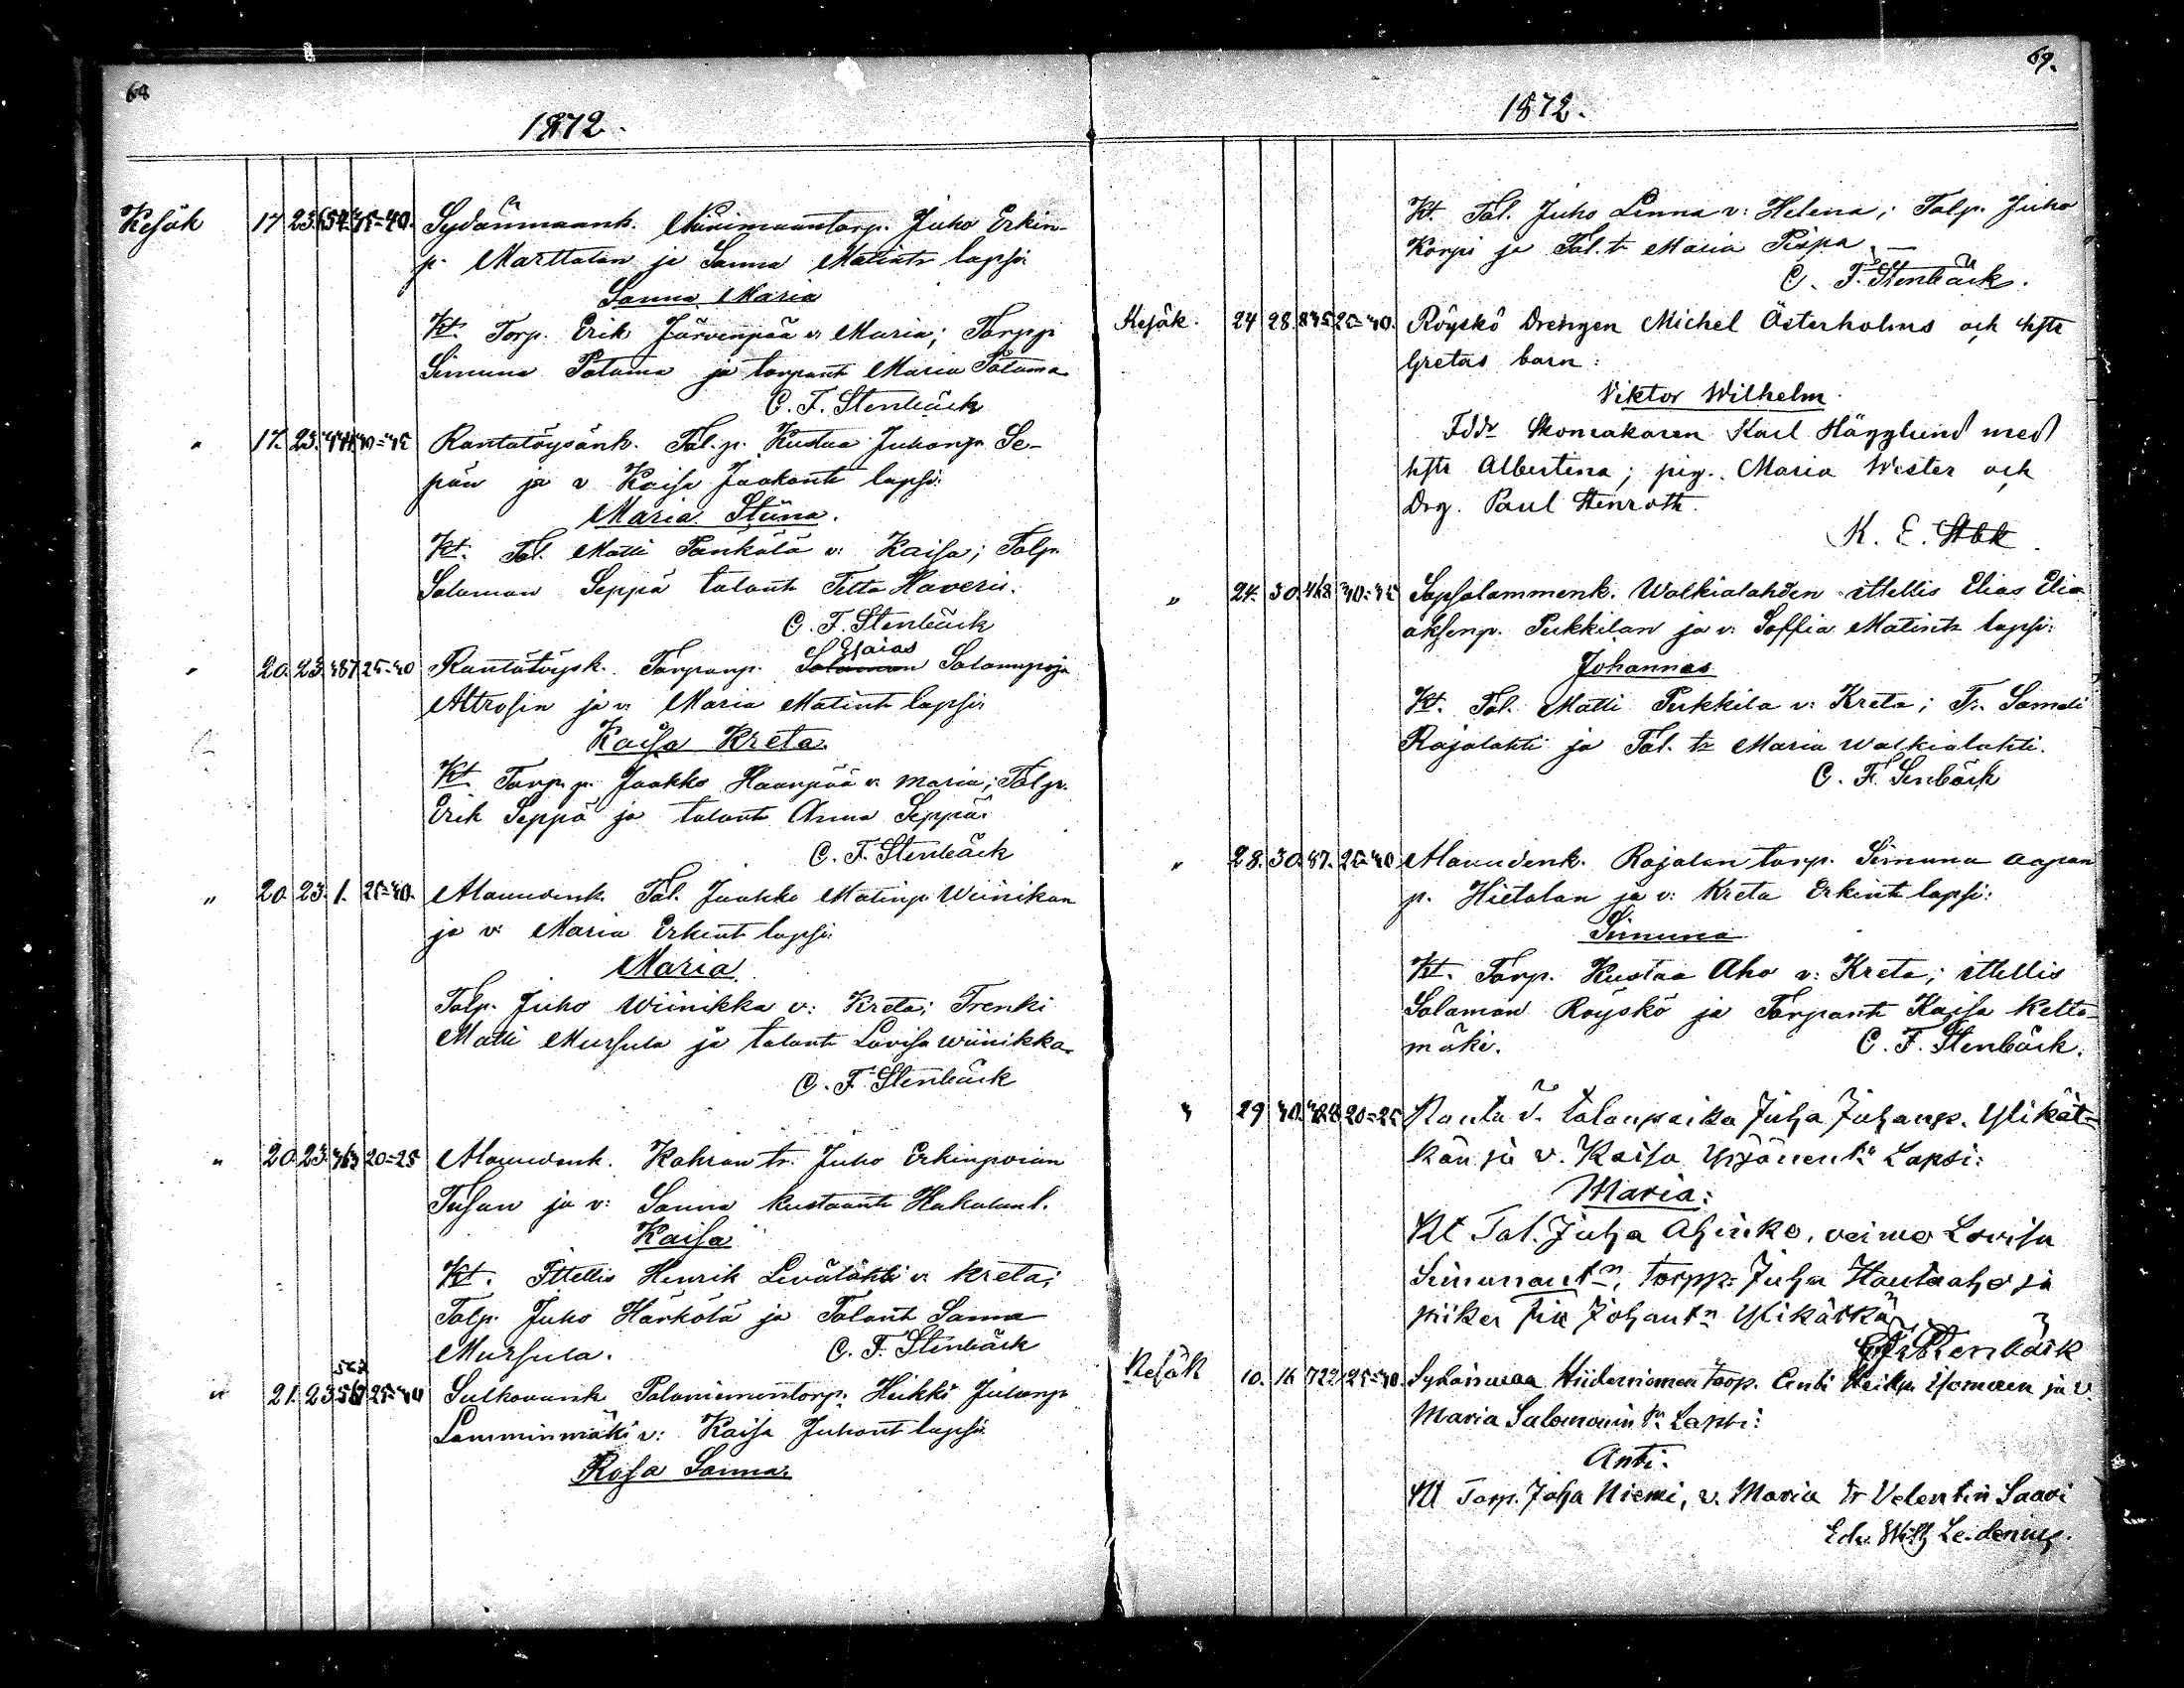 68
1872.
Kesäk 17 23. 654 35=40. Sydänmaank. Niinimaantorp. Juho Erkin-
p. Marttalan ja Sanna Matintr lapsi
Sanna Maria
Kt. Torp. Erik Järvenpää v: Maria; Torpp
Simuna Patama ja torpantr Maria Patama
C. F. Stenbäck
" 17. 23. 40=45 Rantatöysänk. Tal. p. Kustaa Juhanp. Se-
pän ja v Kaisa Jaakontr lapsi:
Maria Stiina.
Kt. Tal. Matti Pänkälä v: Kaisa; Talp.
Salomon Seppä talontr Fetta Haveri.
C. F. Stenbäck
" 20. 23. 487 25-40 Rantatöysk. Torpanp. Salomon Esaias Salamupoja
Atrosin ja v: Maria Matintr lapsi
Kaisa Kreta
Kt Torp. p. Jaakko Haanpää v. Maria; Talp.
Erik Seppä ja talontr Anna Seppä.
C. F. Stenbäck
" 20. 23. 1. 25=40. Alavudenk. Tal. Jaakko Matinp. Wiinikan
ja v: Maria Erkintr lapsi
Maria
Talp. Juho Wiinikka v: Kreta; Trenki
Matti Mursula ja talontr Lovisa Wiinikka.
C. F. Stenbäck
" 20. 23. 363 20=25 Alavudenk. Kahran tr. Juho Erkinpoian
Tusan ja v: Sanna Kustaantr Hakalan l.
Kaisa
Kt. Ittellis Henrik Levälahti v: Kreta;
Talp. Juho Härkölä ja Talontr Sanna
Mursula. C. F. Stenbäck
" 21. 23 567 25=40 Sulkavank Palaniementorp. Heikki Juhanp
Lamminmäki v: Kaisa Juhontr lapsi
Rosa Sanna
69.
1872.
Kt. Tal. Juho Linna v: Helena; Talp. Juho
Korpi ja Tal. tr Maria Pispa.
C. F. Stenbäck.
Kesäk. 24 28 835 25=40. Röyskö Drengen Michel Österholms och hstr
Gretas barn:
Viktor Wilhelm.
Fddr Skomakaren Karl Hägglund med
hstr Albertina; pig. Maria Wester och
Drg. Paul Stenroth.
K. E. Stbk.
" 24. 30. 468 30=35 Sapsalammenk. Walkialahden ittellis Elias Elia
aksenp. Pukkilan ja v: Soffia Matintr lapsi:
Johannas
Kt. Tal. Matti Pukkila v: Kreta; Tr. Sameli
Rajalahti ja Tal. tr Maria Walkialahti.
C. F. Stenbäck
" 28. 30. 87. 25=40 Alavudenk. Rajalan torp. Simuna Aapan
p. Hietalan ja v: Kreta Erkintr lapsi:
Simuna
Kt. Torp. Kustaa Aho v: Kreta; ittellis
Salamon Röyskö ja Torpantr Kaisa Kelto-
mäki. C. F. Stenbäck.
" 29 30. 20=25 Ranta t. talonpoika Juha Juhanp. Ylikät-
kän ja v. Kaisa Yrjänentr Lapsi:
Maria:
Kt Tal. Juha Ahinko, veimo Lovisa
Simunantr; torpp. Juha Hautaaho ja
piika Fia Johantr Ylikätkä
C. F. Stenbäck
Kesäk 10. 16 722 25=40. Sydänmaa Hiideniemen torp. Anti Heikp. ja v.
Maria Salomonin tr Lapsi:
Anti.
Kt Torp. Juha Niemi, v. Maria tr Valentin Saari
Edv. Wilh Leidenius.